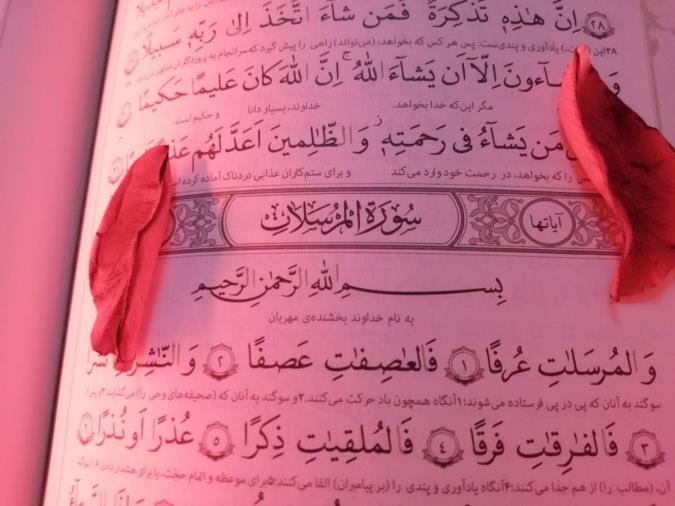 إِنَّ هٰذِهِ تَذْكِرَةٌ فَمَن شَاءَ اتَّخَذَ إِلىٰ رَبِّهِ سَبِيلًا
۲۸ این یادآوری و پندی‌ست. پس هر کس که بخواهد، (می‌تواند) راهی را پیش گیرد که سرانجام به پروردگارش منتهی
وَ اءونَ اِلّا اَن يَشاءَ اللهُ ۚ اِنَّ اللهَ كانَ عَليمًا حَكيمًا
مگر این‌که خدا بخواهد. خداوند، بسیار دانا و حکیم است.
مَن يَشاءُ فى رَحمَتِهِ ۚ وَ الظّٰلِمينَ اَعَدَّ لَهُم
را که بخواهد، در رحمت خود وارد می‌کند و برای ستم‌کاران عذابی دردناک آماده کرده
آیاتها سُورَةُ المُرسَلات
بِسمِ اللهِ الرَّحمٰنِ الرَّحيمِ
به نام خداوند بخشنده‌ی مهربان
وَ المُرسَلٰتِ عُرفًا ۱ فَالعٰصِفٰتِ عَصفًا ۲ وَ النّٰشِر
سوگند به آنان که پی در پی فرستاده می‌شوند؛ ۱ آنگاه همچون باد حرکت می‌کنند. ۲ و سوگند به آنان که (صحیفه‌های وحی را) می‌گشایند؛ ۳
۳ فَالفٰرِقٰتِ فَرقًا ۴ فَالمُلقِيٰتِ ذِكرًا ۵ عُذرًا اَو نُذرًا
آن، (مطالب را) از هم جدا می‌کنند؛ ۴ آنگاه یادآوری و پندی را (بر پیامبران) القا می‌کنند؛ ۵ برای موعظه و اتمام حجّت، یا برای هشدار دادن ۶